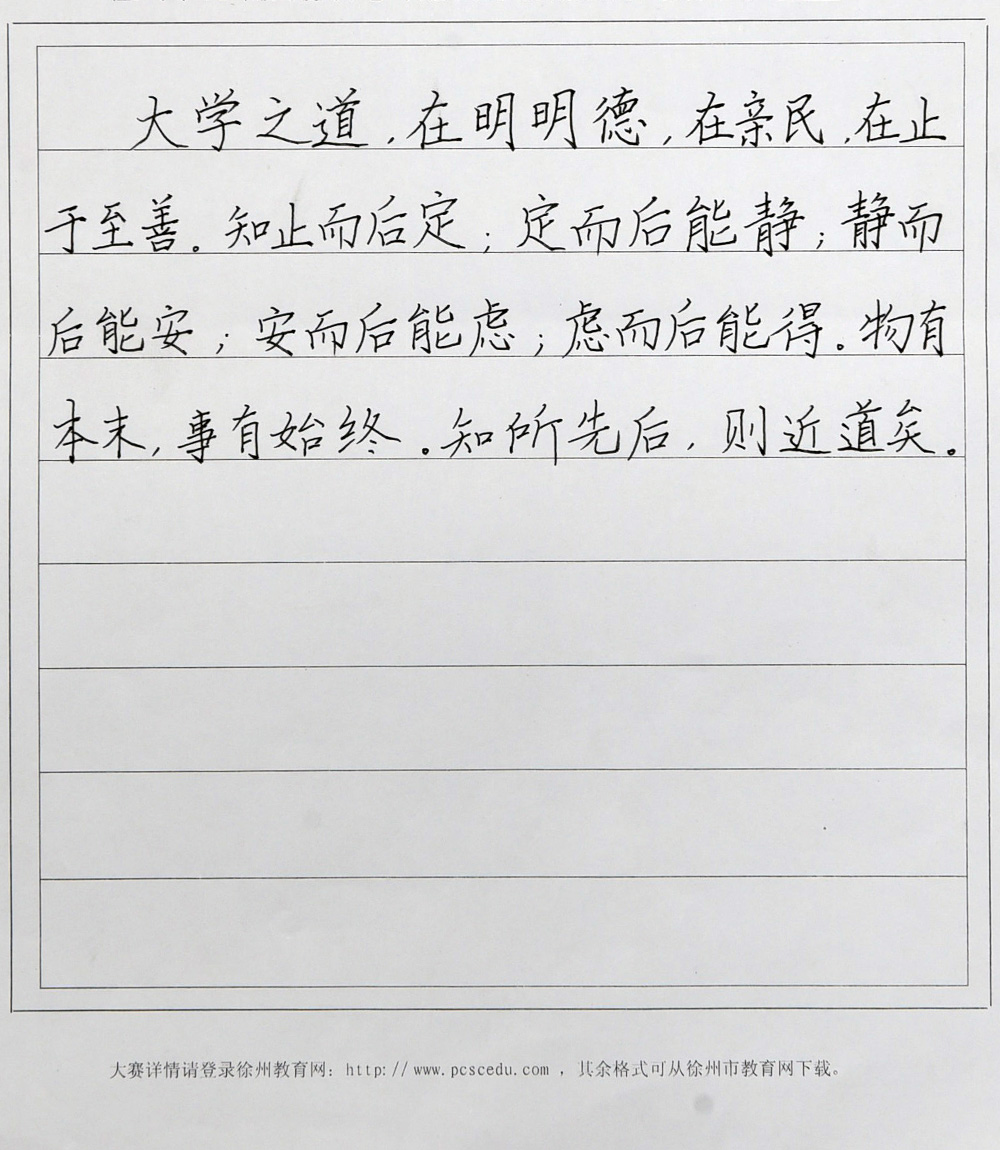 大学之道,在明明德,在亲民,在止
于至善。知止而后定;定而后能静;静而
后能安;安而后能虑;虑而后能得。物有
本末,事有始终。知所先后,则近道矣。
大赛详情请登录徐州教育网:http://www.pcscedu.com ,其余格式可从徐州市教育网下载。